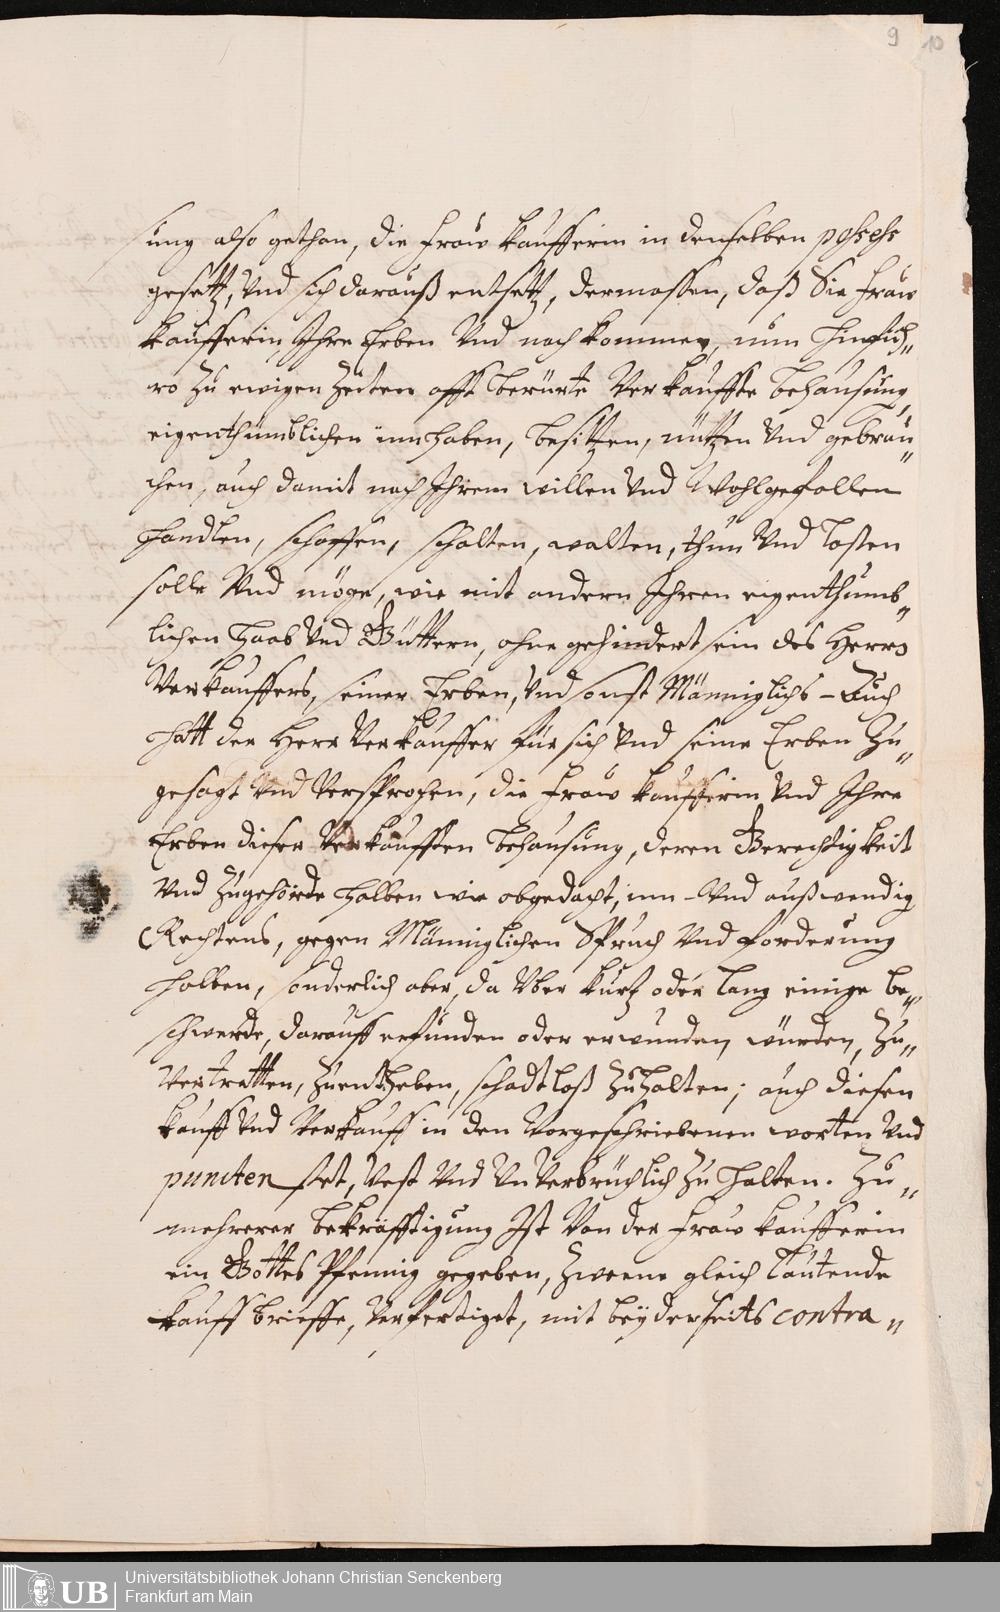 9 10
sung also gethan, die Fraw Kaufferin in denselben possess
gesetzt, Vnd sich darauß entsetzt, dermassen, daß Sie Fraw
Kaufferin, Ihre Erben Vnd nachkommen, nun hinfüh„
ro zu ewigen Zeiten offt berürte Verkauffte behausung,
eigenthumblichen innhaben, besitzen, nützen Vnd gebrau„
chen, auch damit nach Ihrem willen Vnd Wohlgefallen
handlen, schaffen, schalten, walten, thun Vnd lassen
solle Vnd möge, wie mit andern Ihren eigenthumb„
lichen Haab Vnd Güttern, ohne gehindert sein des Herrn
Verkauffers, seiner Erben, Vnd sonst Männiglichs - Auch
hatt der Herr Verkauffer für sich Vnd seine Erben Zu„
gesagt Vnd Versprochen, die Fraw Kaufferin Vnd Ihre
Erben dieser Verkaufften behausung, deren Gerechtigkeit
Vnd Zugehörde halben wie obgedacht, inn- Vnd außwendig
Rechtens, gegen Männiglichen Spruch Vnd forderung
halben, sonderlich aber, da Vber kurtz oder lang einige be„
schwerde, darauff erfunden oder erwunden würden, Zu„
Vertretten, Zuentheben, schadtloß Zuhalten; auch diesen
Kauff Vnd Verkauff in den Vorgeschriebenen worten Vnd
puncten stet, Vest Vnd VnVerbrüchlich Zu halten. Zu„
mehrerer bekräfftigung Ist Von der Fraw Kaufferin
ein Gottes Pfennig gegeben, Zweene gleich lautende
Kauffbrieffe, Verfertiget, mit beÿderseits contra„
UB Universitätsbibliothek Johann Christian Senckenberg
Frankfurt am Main